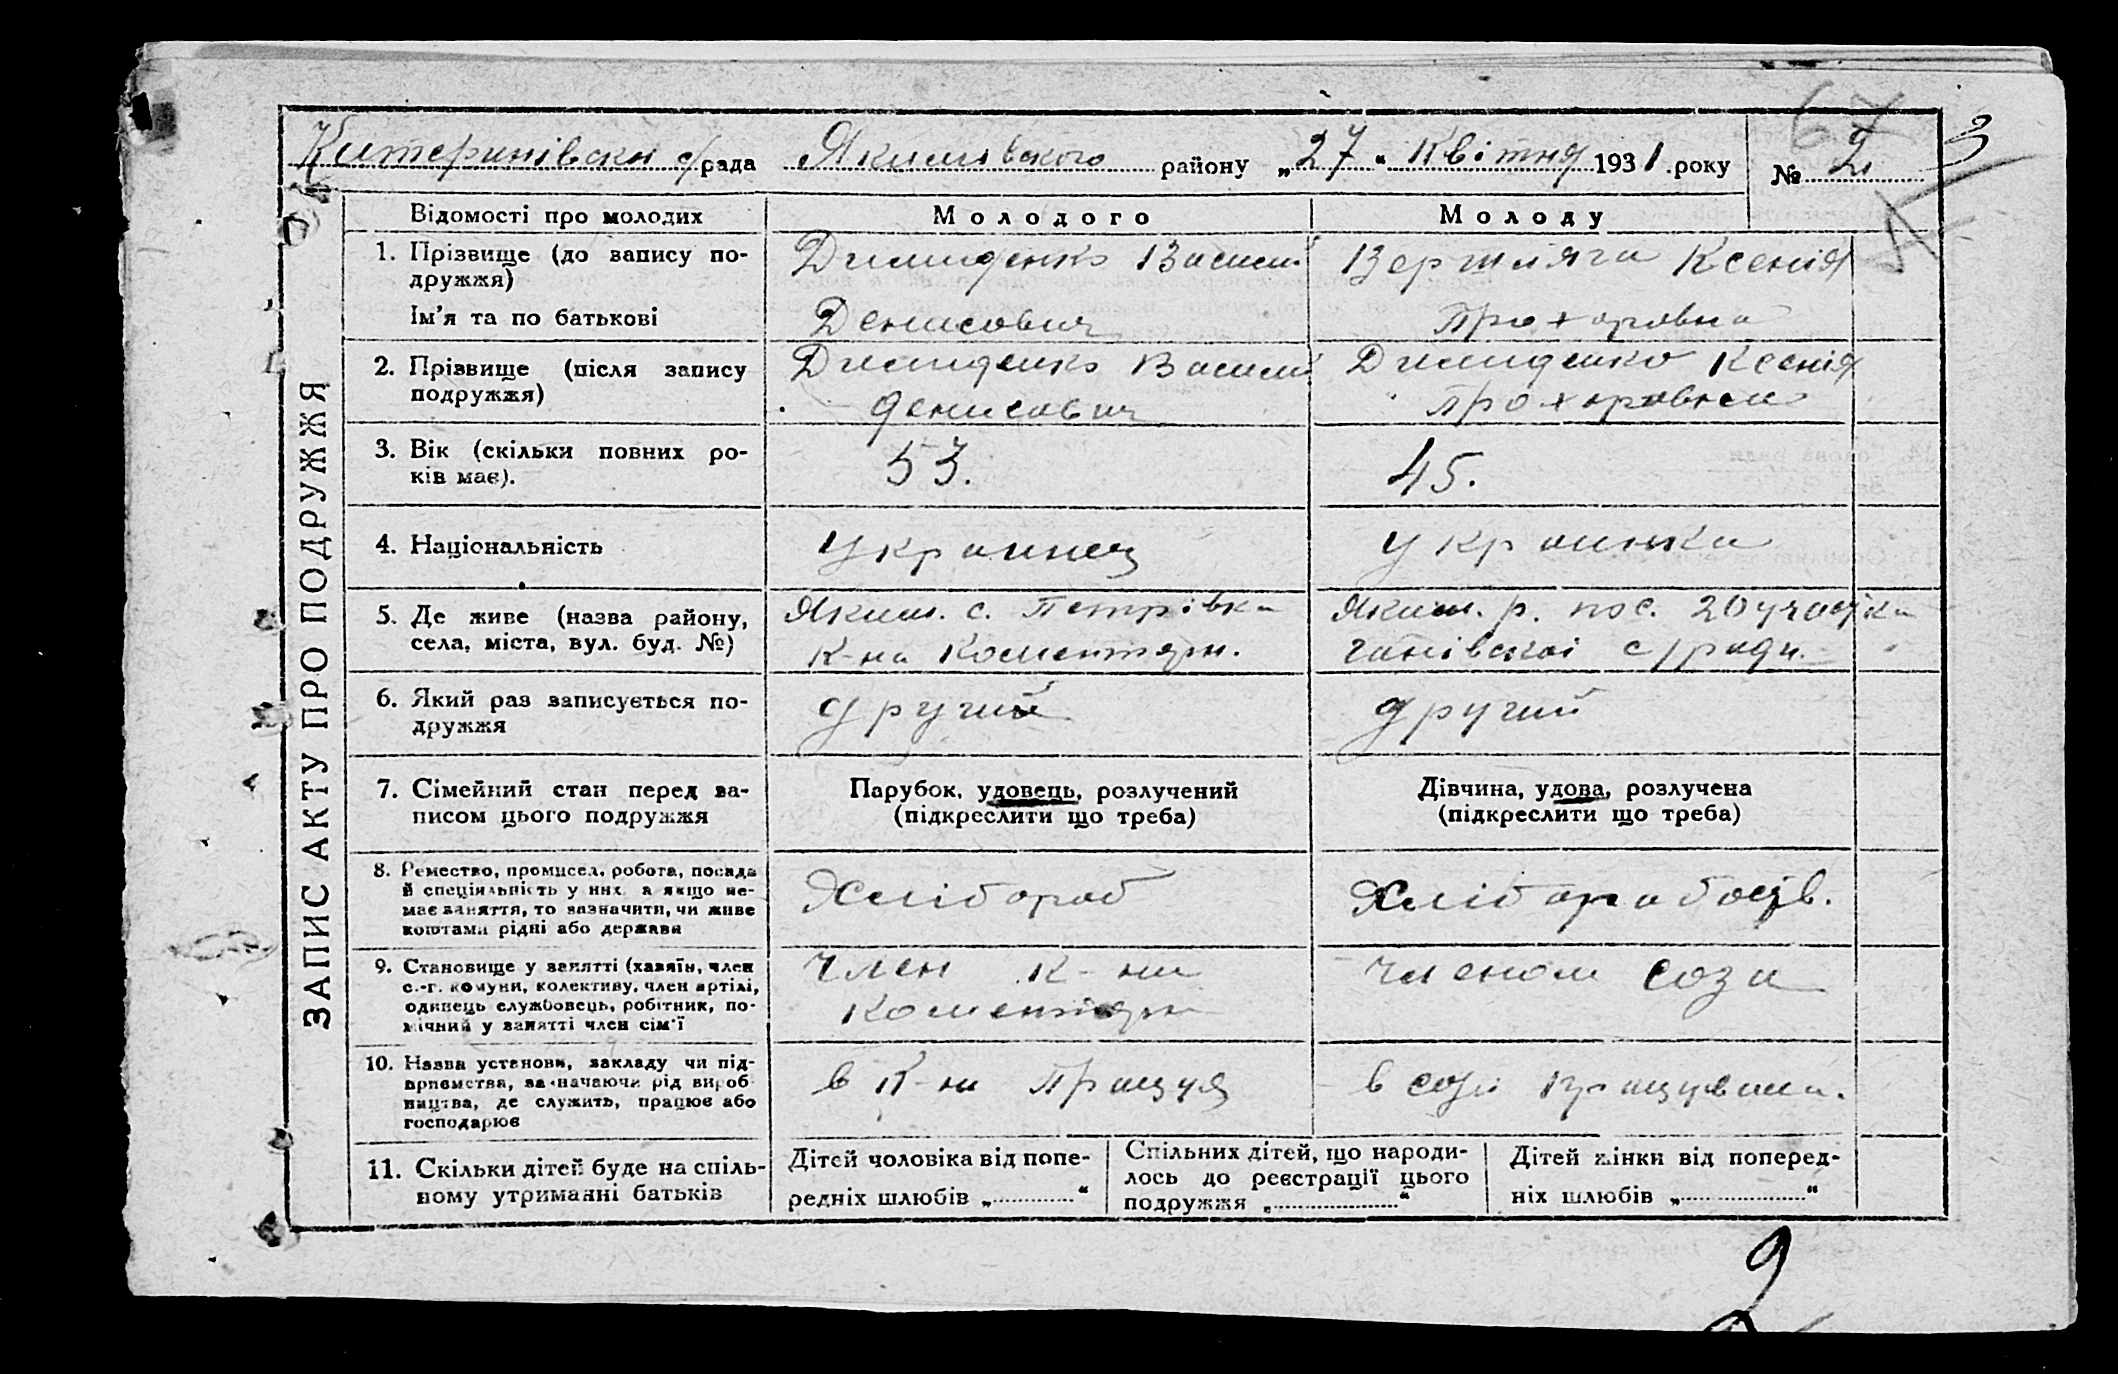 Катеринівська с/рада Якимівського району „27“ Квітня 1931 року № 2
67 3
ЗАПИС АКТУ ПРО ПОДРУЖЖЯ
Відомості про молодих Молодого Молоду
1. Прізвище (до запису по-
дружжя)
Ім'я та по батькові
Василь
Денисович
Ксенія
Прохоровна
2. Прізвище (після запису
подружжя)
Василь
Денисович
Ксенія
Прохоровна
3. Вік (скільки повних ро-
ків має).
53.
45.
4. Національність
Украинец
Украинка
5. Де живе (назва району,
села, міста, вул. буд. №)
Яким. с. Петрівка
К-на Коментерн.
Яким. р. пос. 20 участка
с/ради.
6. Який раз записується по-
дружжя
другий
другий
7. Сімейний стан перед за-
писом цього подружжя
Парубок, удовець, розлучений
(підкреслити що треба)
Дівчина, удова, розлучена
(підкреслити що треба)
8. Ремество, промисел, робота, посада
й спеціяльність у них, а якщо не-
має заняття, то зазначити, чи живе
коштами рідні або держави
Хлібороб
9. Становище у занятті (хазяїн, член
с.-г. комуни, колективу, член артілі,
одинець службовець, робітник, по-
мічний у занятті член сім'ї
Член К-ни
Коментерн
Членом соза
10. Назва установи, закладу чи під-
приємства, зазначаючи рід вироб-
ництва, де служить, працює або
господарює
в К-ни Працуя
в созі працувала.
11. Скільки дітей буде на спіль-
ному утриманні батьків
Дітей чоловіка від попе-
редніх шлюбів „ “
Спільних дітей, що народи-
лось до реєстрації цього
подружжя „ “
Дітей жінки від поперед-
ніх шлюбів „ “
9